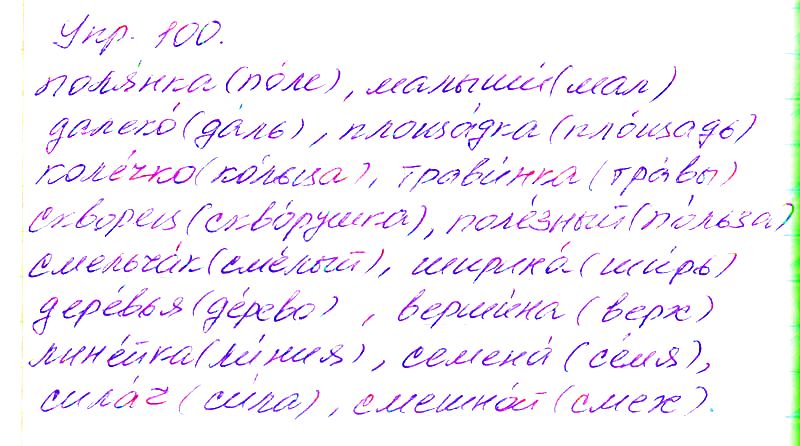 Упр. 100.
поля́нка (по́ле), малыши́ (мал)
далеко́ (да́ль), площа́дка (пло́щадь)
коле́чко (ко́льца), трави́нка (тра́вы)
скворец (скво́рушка), поле́зный (по́льза)
смельча́к (сме́лый), ширина́ (ши́рь)
дере́вья (де́рево), верши́на (верх)
лине́йка (ли́ния), семена́ (се́мя),
сила́ч (си́ла), смешно́й (смех).